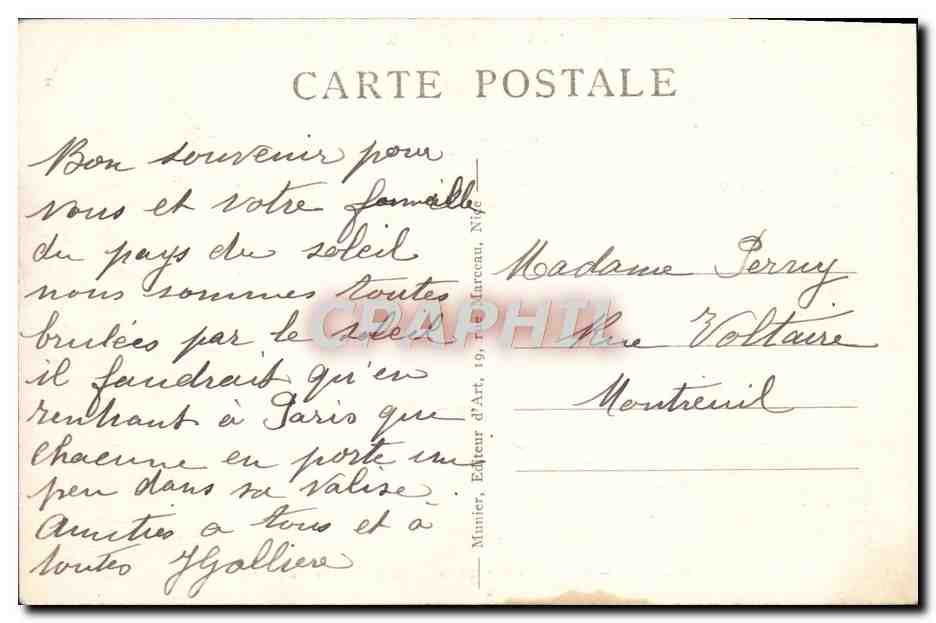 CARTE POSTALE
Bon souvenir pour
vous et votre famille
du pays du soleil
nous sommes toutes
brulées par le soleil
il faudrait qu'en
rentrant à Paris que
chacune en porte un
peu dans sa valise.
Amitiés a tous et à
toutes
Munier, Editeur d'Art, 19, rue Marceau, Nice
Madame Perny
Rue Voltaire
Montreuil
CPAPHIL